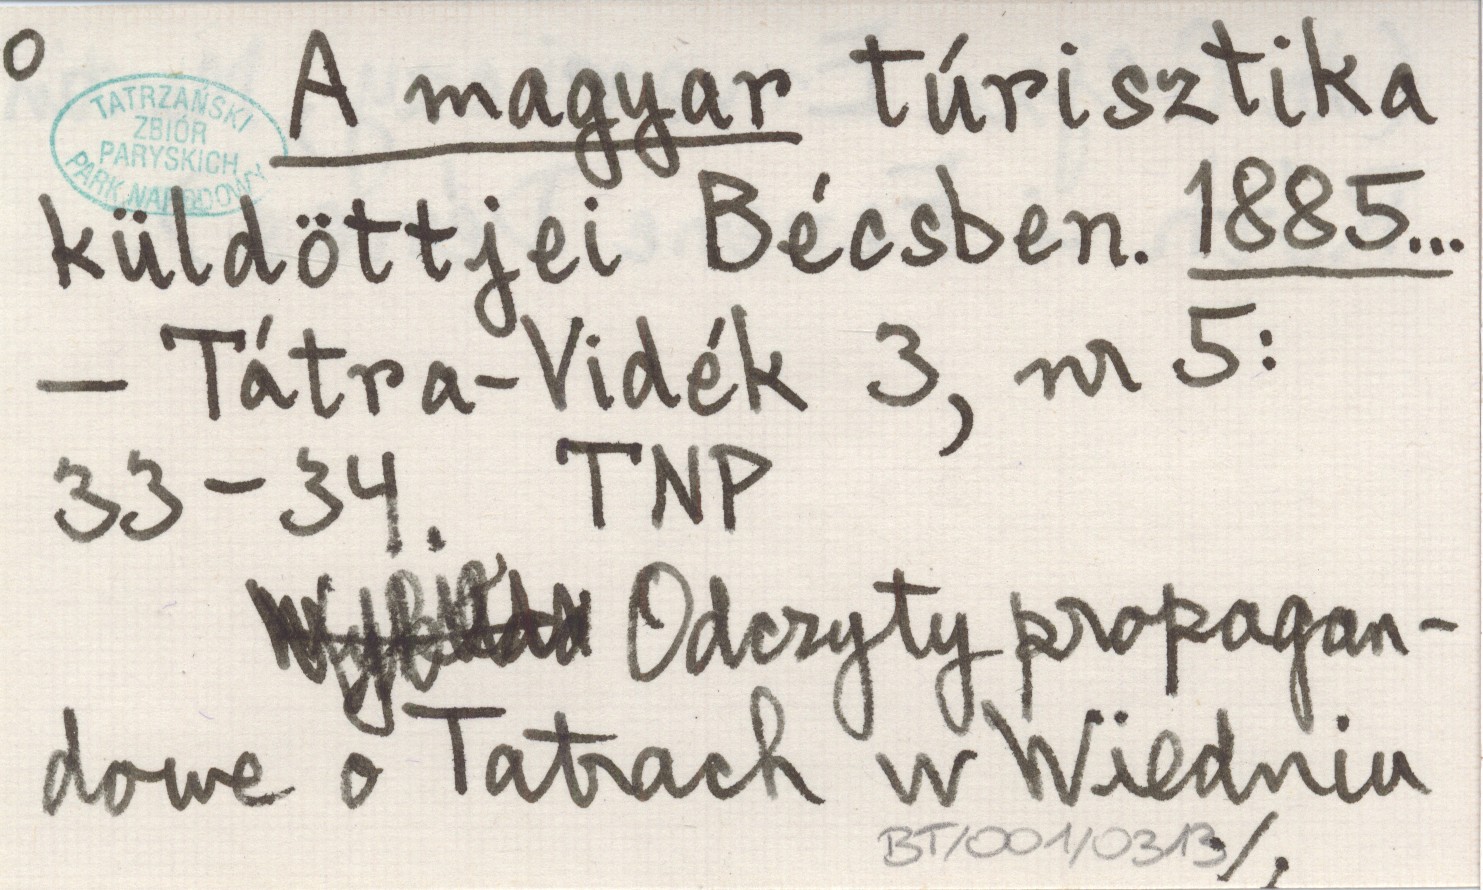 o
A magyar túrisztika
TATRZAŃSKI
ZBIÓR
PARYSKICH
PARK NARODOWY
küldöttjei Bécsben. 1885...
— Tátra-Vidék 3, nr 5:
33-34. TNP
Odczyty propagan-
dowe o Tatrach w Wiedniu
/.
BT/001/0313